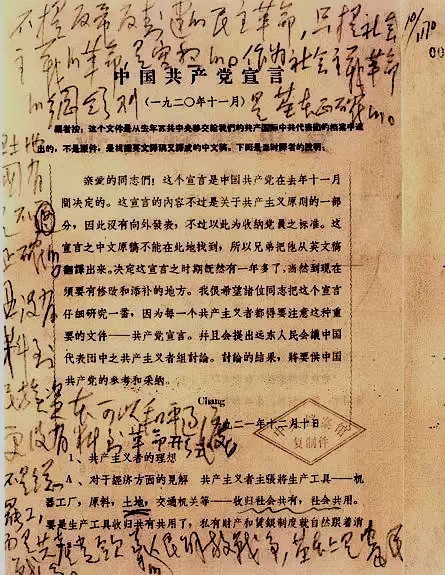 不提反帝反封建的民主革命，只提社会
主义的革命，是空想的。作为社会主义革命
的纲领则
是基本正确的。
中国共产党宣言
（一九二〇年十一月）
编者按：这个文件是从去年苏共中央移交給我們的共产国际中共代表团的档案中选
出的，不是原件，是根据英文譯稿又譯成的中文稿。下面是当时譯者的說明：
亲爱的同志們！这个宣言是中国共产党在去年十一月
間决定的。这宣言的內容不过是关于共产主义原则的一部
分，因此沒有向外發表，不过以此为收納党員之标准。这
宣言之中文原稿不能在此地找到，所以兄弟把他从英文稿
翻譯出来。决定这宣言之时期既然有一年多了，当然到现在
須要有修改和添补的地方。我很希望諸位同志把这个宣言
仔細研究一番，因为每一个共产主义者都得要注意这种重
要的文件——共产党宣言。并且会提出远东人民会議中国
代表团中之共产主义者組討論。討論的結果，將要供中国
共产党的参考和采納。
Chang
一九二一年十二月十日
复制件
1、共产主义者的理想
A、对于經济方面的見解 共产主义者主張将生产工具——机
器工厂，原料，土地，交通机关等——收归社会共有，社会共用。
要是生产工具收归共有共用了，私有財产和賃銀制度就自然跟着消
土地
国有
是不
正确的
没有
料到
民族资
本可以和平过渡
更没有
料到革命形式
不是总
罢工，
而是共
产党领导的人民解放战争，基本上是农民